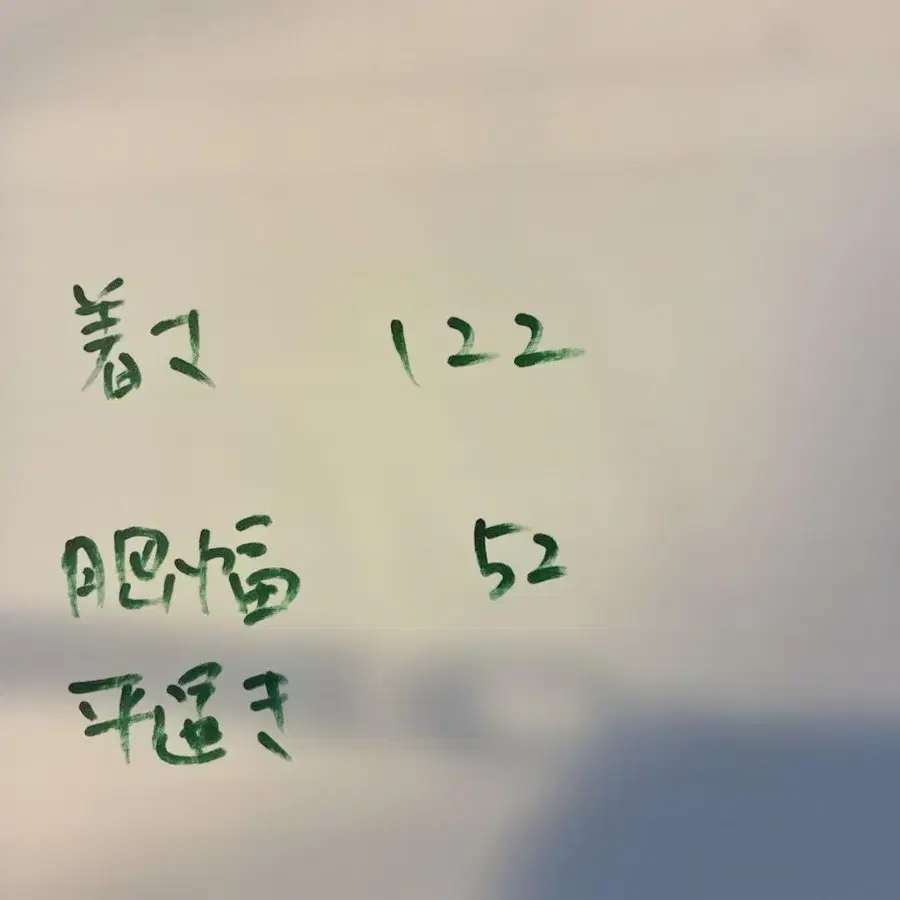 着丈 122
肥幅 52
平置き